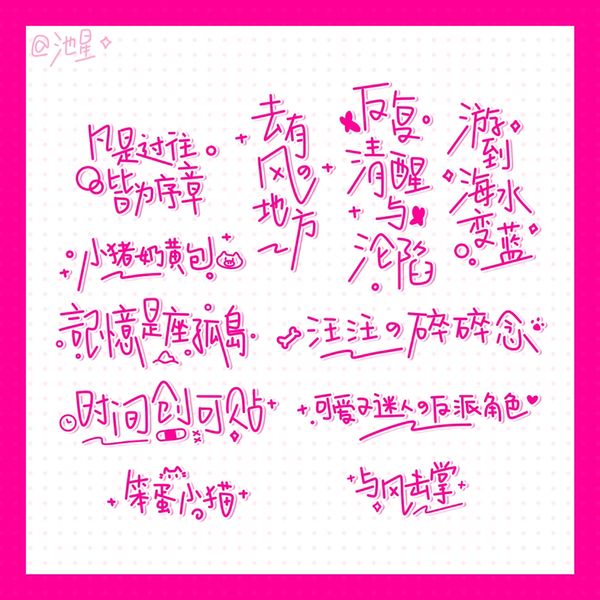 @池星
凡是过往
皆为序章
去有
风の
地方
反复
清醒
与
沦陷
游到
海水
变蓝
小猪奶黄包
記憶是座孤島
汪汪の碎碎念
时间创可贴
可爱又迷人の反派角色
笨蛋小猫
与风击掌